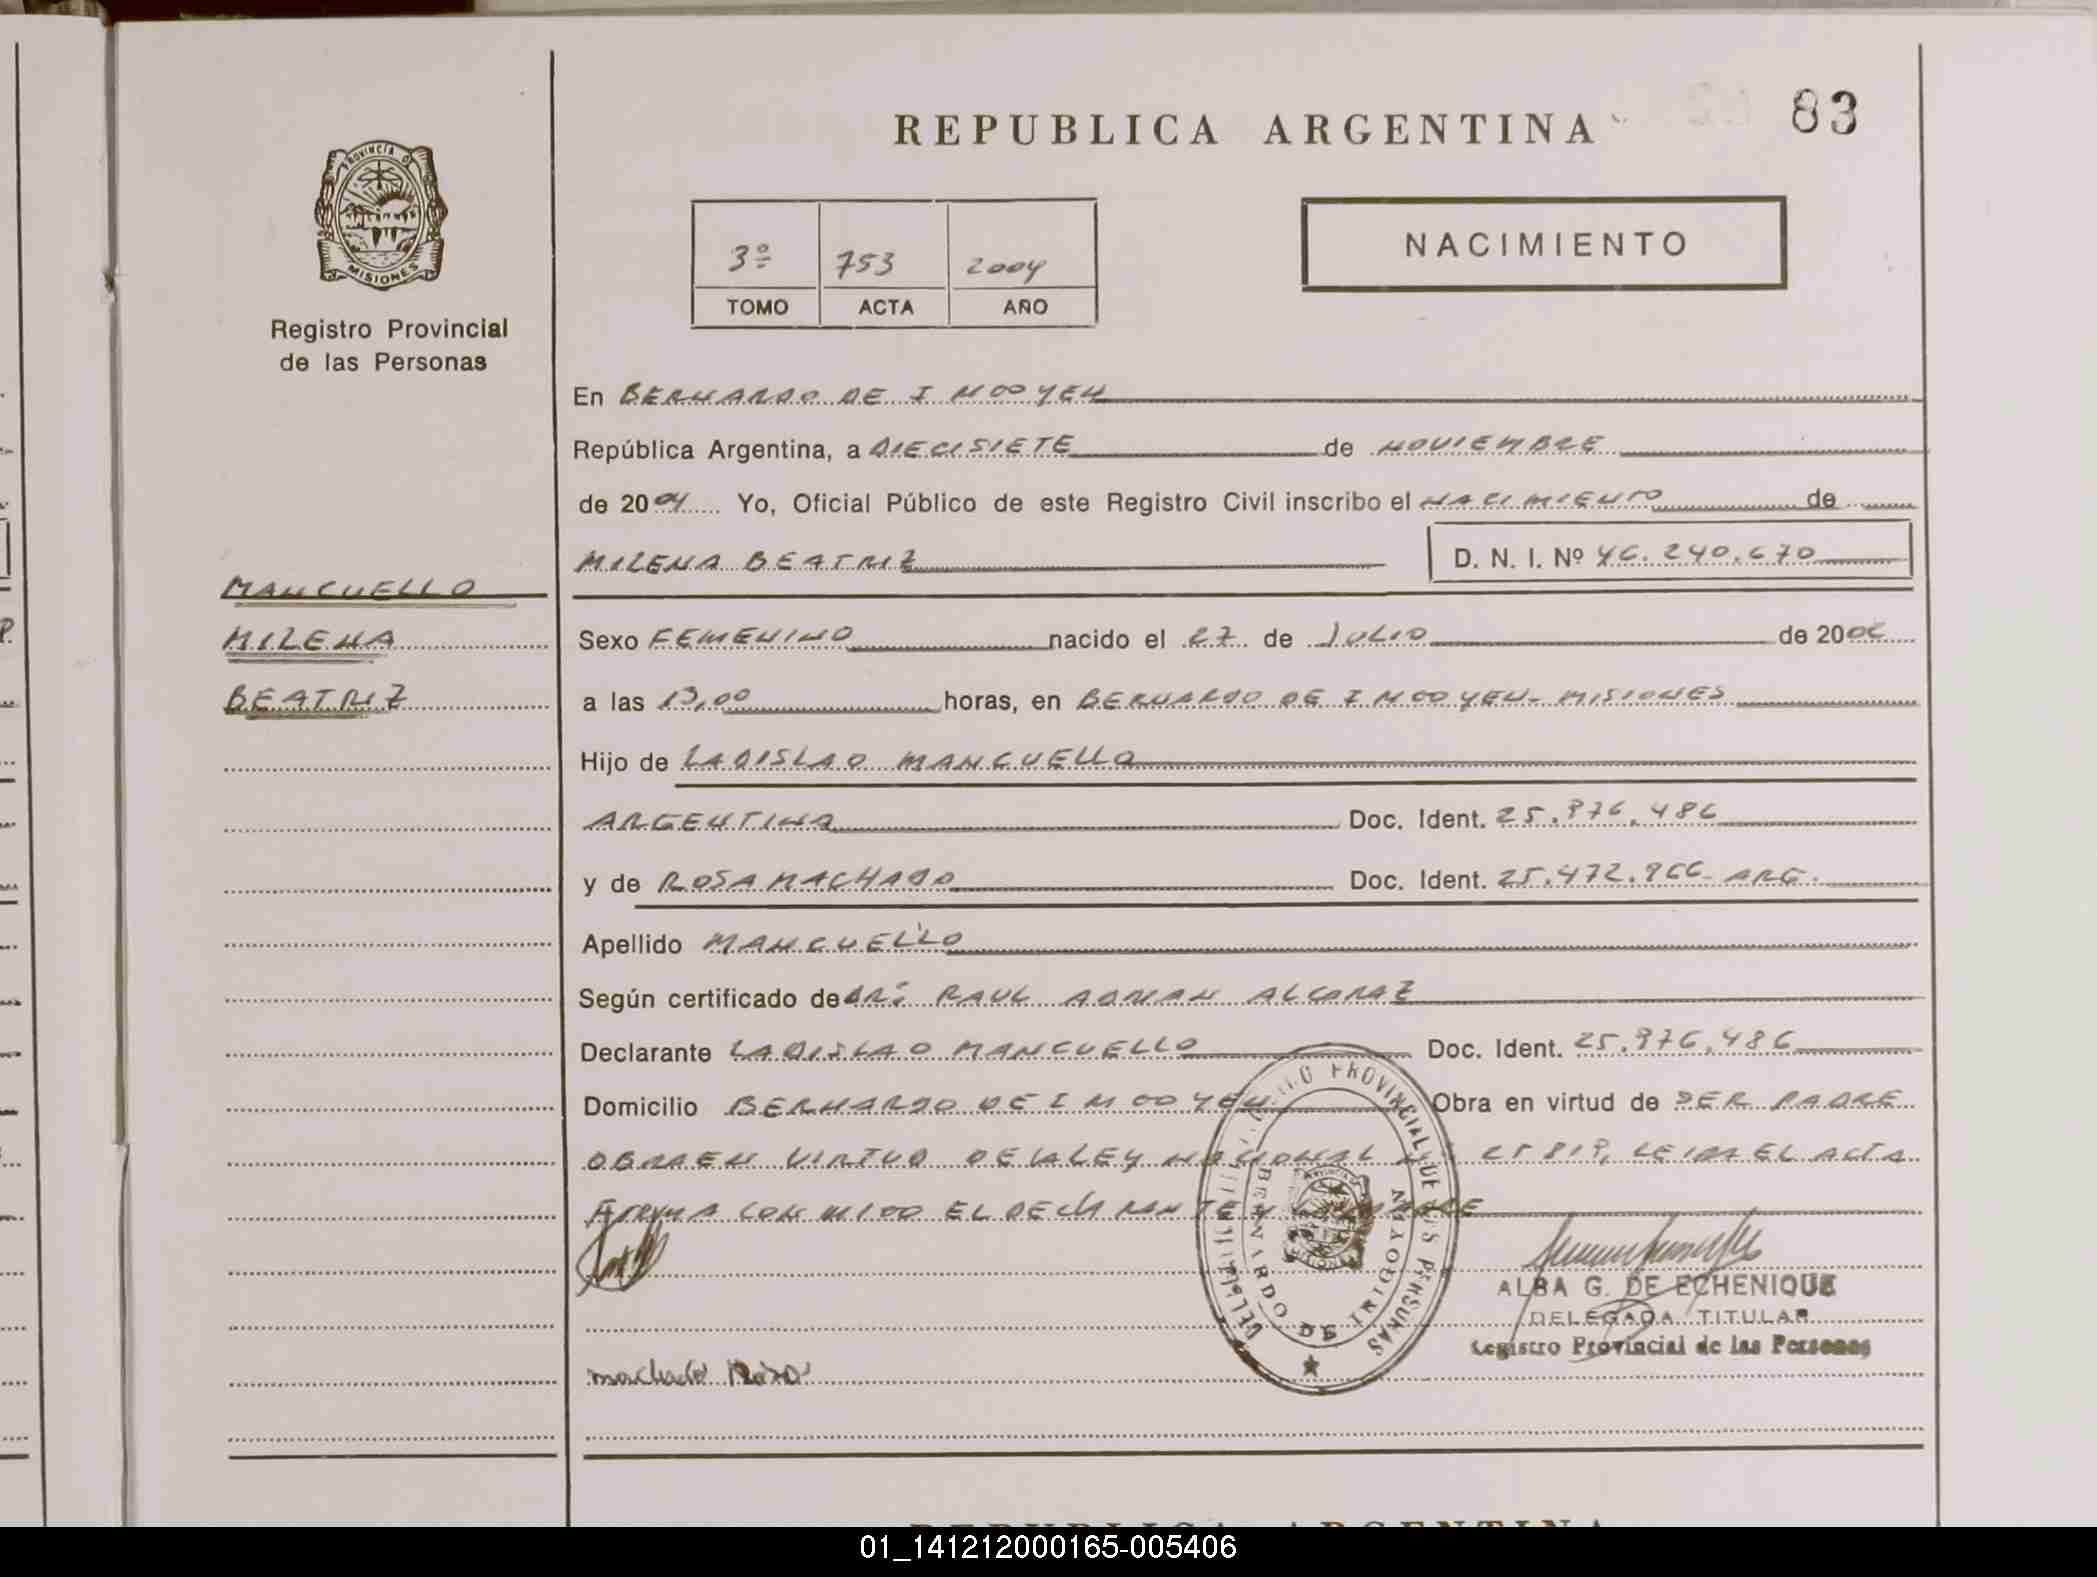 REPUBLICA ARGENTINA
83
PROVINCIA DE
MISIONES
Registro Provincial
de las Personas
3º 753 2004
TOMO ACTA AÑO
NACIMIENTO
En BERNARDO DE IRIGOYEN
República Argentina, a DIECISIETE de NOVIEMBRE
de 2004 Yo, Oficial Público de este Registro Civil inscribo el NACIMIENTO de
MILENA BEATRIZ D. N. I. Nº 46.240.670
MANCUELLO
MILENA
BEATRIZ
Sexo FEMENINO nacido el 27 de JULIO de 200
a las 13,00 horas, en BERNARDO DE IRIGOYEN - MISIONES
Hijo de LADISLAO MANCUELLO
ARGENTINA Doc. Ident. 25.976.486
y de ROSA MACHADO Doc. Ident. 25.472.966 - ARG.
Apellido MANCUELLO
Según certificado de DR: RAUL ADRIAN ALCARAZ
Declarante LADISLAO MANCUELLO Doc. Ident. 25.976.486
Domicilio BERNARDO DE IRIGOYEN Obra en virtud de SER PADRE
OBRA EN VIRTUD DE LA LEY NACIONAL 25819, LEIDA EL ACTA
FIRMA CONMIGO EL DECLARANTE Y MADRE
REGISTRO PROVINCIAL DE LAS PERSONAS
DELEGACION
BERNARDO DE IRIGOYEN
ALBA G. DE ECHENIQUE
DELEGADA TITULAR
Registro Provincial de las Personas
machado Rosa
REPUBLICA ARGENTINA
01_141212000165-005406